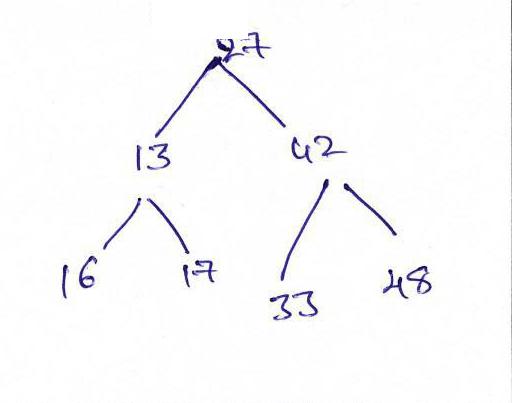 27
13 42
16 17 33 48